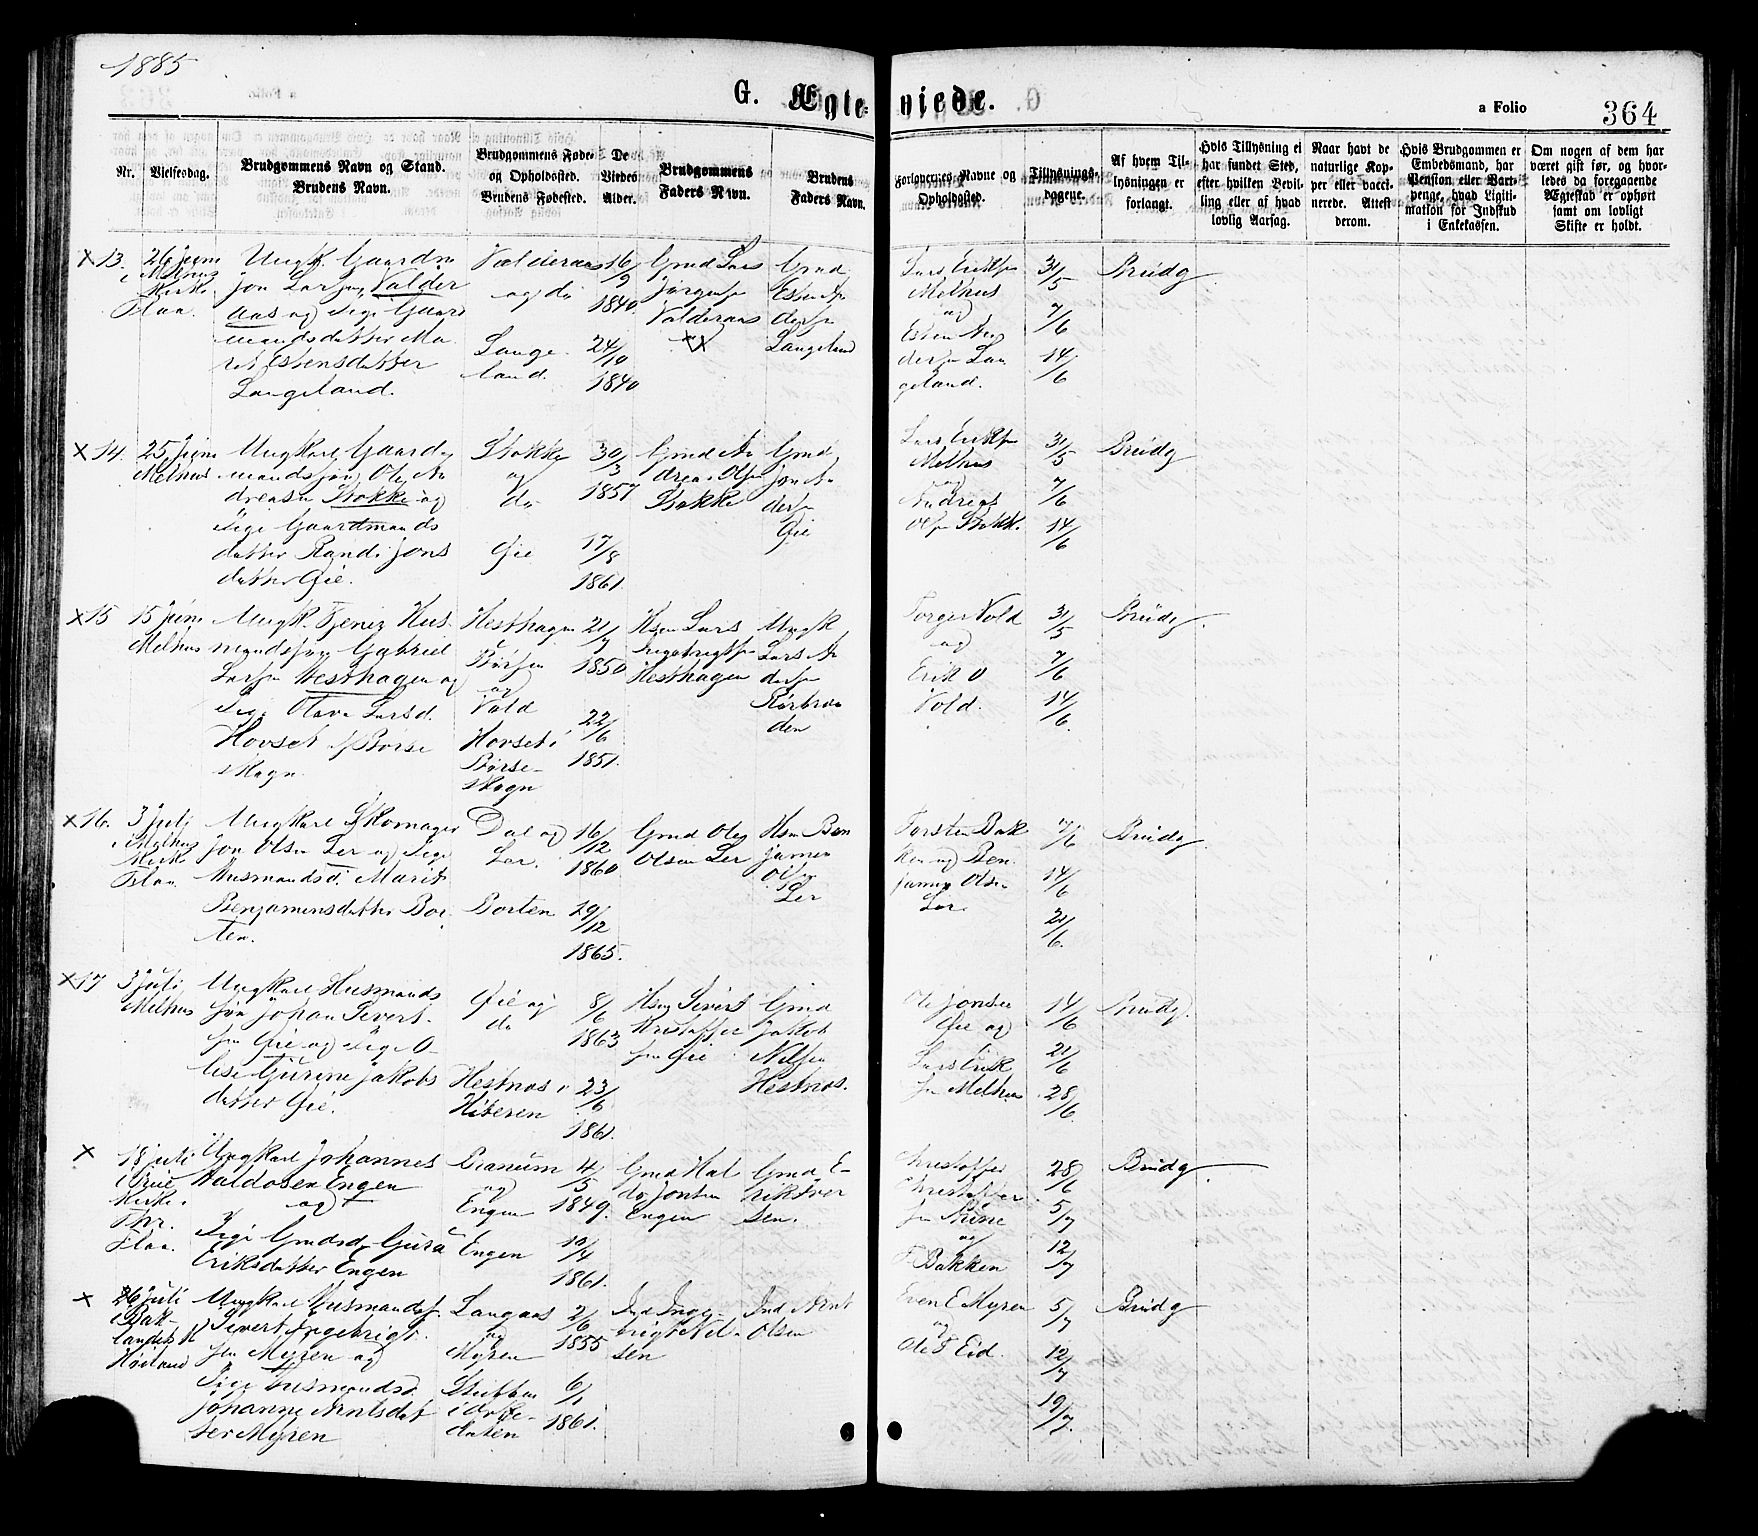 1885
G. Ægte-
viede.
a Folio
364
Nr.
Vielsesdag.
Brudgommens Navn og Stand.
Brudens Navn.
Brudgommens Føde-
og Opholdssted.
Brudens Fødested.
De
Viedes
Alder.
Brudgommens
Faders Navn.
Brudens
Faders Navn.
Forlovernes Navne og
Opholdssted.
Tillysnings-
dagene.
Af hvem Til-
lysningen er
forlangt.
Hvis Tillysning ei
har fundet Sted,
efter hvilken Bevil-
ling eller af hvad
lovlig Aarsag.
Naar havt de
naturlige Kop-
per eller vacci-
nerede. Attest
derom.
Hvis Brudgommen er
Embedsmand, har
Pension eller Vart-
penge, hvad Ligiti-
mation for Indskud
i Enkekassen.
Om nogen af dem har
været gift før, og hvor-
ledes da foregaaende
Ægteskab er ophørt
samt om lovligt
Skifte er holdt.
x 13.
26 Juni
Kirke
Flaa.
Ungk. Gaardm
Jon Larsen Valder
aas og Pige Gaard
mandsdatter Ma
rit Estensdatter
Langeland.
Valderaas
og
Lange
land.
16/9
1840.
24/10
1840
Gmd Lars
Jørgensen
Valderaas
Gmd
Esten An
dersen
Langeland
Lars Eriksen
Melhus
og
Esten An
dersen Lan
geland.
31/5
7/6
14/6
Brudg
x 14.
25 Juni
Melhus
Ungkarl Gaard
mandssøn Ole An
dreasen Stokke og
Pige Gaardmands
datter Randi Jons
datter Øie.
Stokke
og
do
Øie
30/3
1857
17/8
1861.
Gmd An
dreas Olsen
Stokke
Gmd
Jon An
dersen
Øie
Lars Eriksen
Melhus
og
Andreas
Olsen Stokk.
31/5
7/6
14/6
Brudg
x 15
15 Juni
Melhus
Ungk. Tjenig Hus
mandssøn Gabriel
Larsen Hesthagen og
Pige Olava Larsd.
Hovset i Børse
skogn.
Hesthagen
Børsen
og
Vold
Hovset i
Børse-
skogn
21/7
1850
22/6
1851.
Hsm Lars
Ingebrigtsen
Hesthagen
Ungk
Lars An
dersen
Torger Vold
og
Erik O
Vold.
31/5
7/6
14/6
Brudg.
x 16.
3 Juli
i Melhus
Kirke
Flaa.
Ungkarl Skomager
Jon Olsen Ler og Pige
Husmandsd. Marit
Benjaminsdatter Bor
ten.
Dal og
Ler.
Borten
16/12
1860
29/12
1865.
Gmd Ole
Olsen Ler
Hsm Ben
jamin
Olsen
Ler
Torsten Bak
ken og Ben
jamin Olsen
Ler
7/6
14/6
21/6.
Brudg.
x 17
3 Juli
Melhus
Ungkarl Husmands
søn Johan Sivert
sen Øie og Pige O-
lise Gurine Jakobs
datter Øie.
Øie og
do
Hestnes i
Hiteren
8/6
1863
23/6
1861.
Hsm Sivert
Kristoffer
sen Øie
Gmd
Jakob
Nilsen
Hestnes.
Ole Jonsen
Øie og
Lars Erik
sen Melhus
14/6
21/6
28/6.
Brudg.
x
18 Juli
Kirke
Thr.
Flaa.
Ungkarl Johannes
Haldosen Engen
og
Pige Gmdsd Guru
Eriksdatter Engen
og
Engen
Engen
4/5
1849.
10/4
1861.
Gmd Hal
do Jonsen
Engen
Gmd E-
rik Iver
sen.
Christoffer
Christoffer
sen
og
Bakken
28/6
5/7
12/7
Brudg.
x
26 Juli
i Bak-
landets K
Ungkarl Husmandss.
Sivert Ingebrigt
sen Myren og
Pige Husmandsd.
Johanne Arntsdat
ter Myren
Langaas
og
Myren
i Orke-
dalen
2/6
1855
6/1
1861.
Ind Inge-
brigt Nil-
sen
Ind Arnt
Olsen
Even E Myren
og
Ole T Eid.
5/7
12/7
19/7.
Brudg